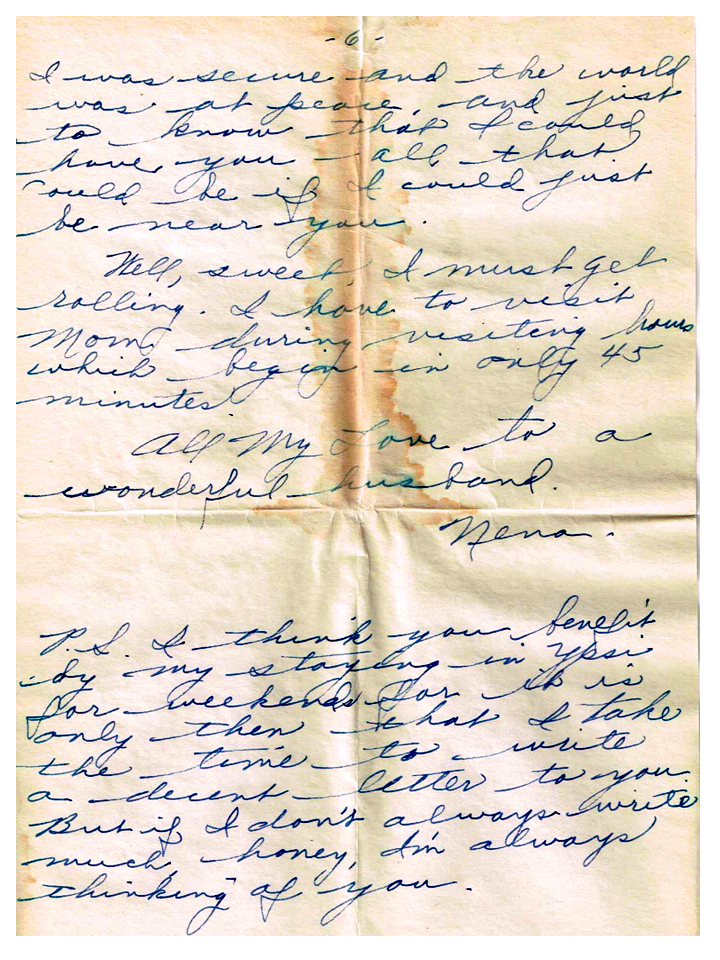 -6-
I was secure and the world
was at peace, and just
to know that I could
have you all that
could be if I could just
be near you.
Well, sweet, I must get
rolling. I have to visit
Mom during visiting hours
which begin in only 45
minutes.
All My Love to a
wonderful husband.
Nena.
P.S. I think you benefit
by my staying in Ypsi
for weekends for it is
only then that I take
the time to write
a decent letter to you.
But if I don't always write
much, honey, I'm always
thinking of you.